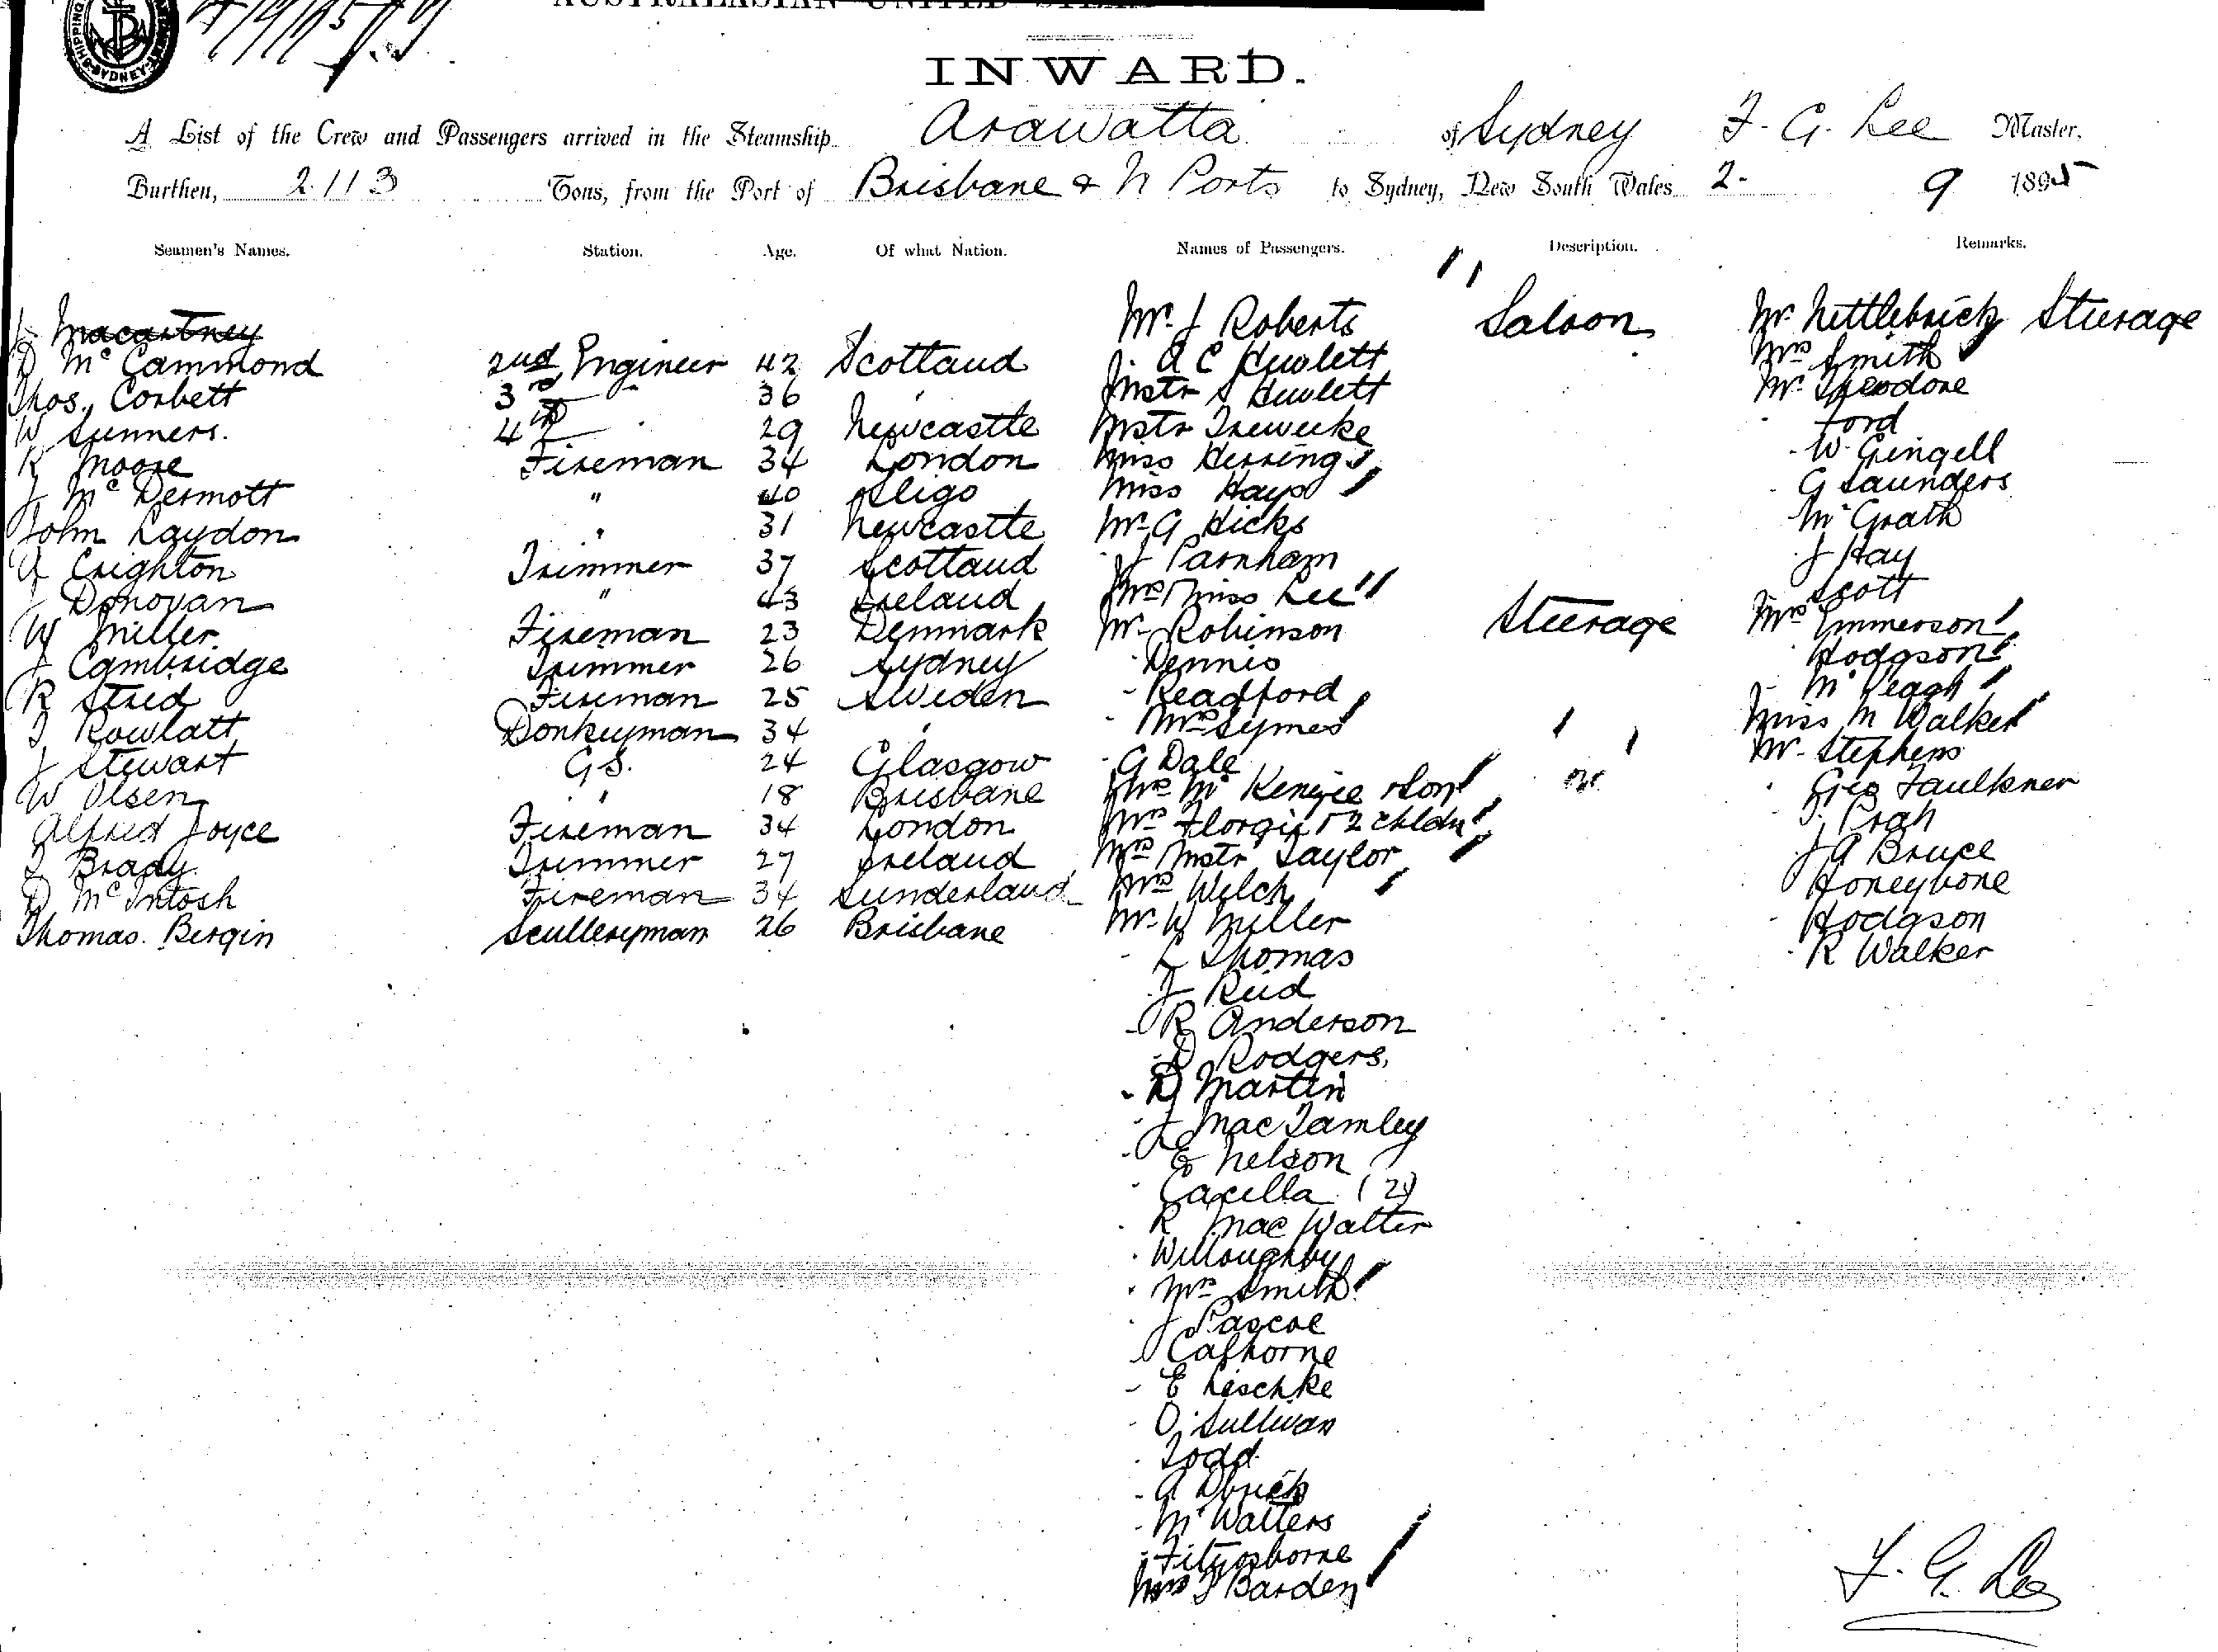 INWARD.
A List of the Crew and Passengers arrived in the Steamship Arawatta of Sydney F. G. Lee Master,
Burthen, 2113 Tons, from the Port of Brisbane & N Ports to Sydney, New South Wales 2- 9 1895
Seamen's Names. Station. Age. Of what Nation. Names of Passengers. Description. Remarks.
Macartney Mr. J Roberts Saloon Mr. Nettlebrick Steerage
D McCammond 2nd Engineer 42 Scotland A C Hewlett Mrs Smith
Thos. Corbett 3rd 36 Mstr S Hewlett Mr. Theodore
W Sunners. 4th 29 Newcastle Mstr Treweeke Ford
R Moore Fireman 34 London Miss Herring W. Gingell
J McDermott " 40 Sligo Miss Hays G Saunders
John Laydon " 31 Newcastle Mr. G Hicks McGrath
A Crighton Trimmer 37 Scotland J Parnham J Hay
J Donovan " 43 Ireland Mrs Miss Lee Scott
W Miller Fireman 23 Denmark Mr. Robinson Steerage Mrs Emmerson
J Cambridge Trimmer 26 Sydney Dennis Hodgson
R Stred Fireman 25 Sweden Readford McVeagh
J Rowlatt Donkeyman 34 Mrs Symes Miss M Walker
J Stewart G.S. 24 Glasgow G Dale Mr. Stephens
W Olsen " 18 Brisbane Mrs McKenzie & Son Geo Faulkner
Alfred Joyce Fireman 34 London Mrs 2 chldn
J Brady Trimmer 27 Ireland Mrs Mstr Taylor J A Bruce
D McIntosh Fireman 34 Sunderland Mrs Welch Honeybone
Thomas. Bergin Sculleryman 26 Brisbane Mr. W Miller Hodgson
L Thomas R Walker
J Reid
R Anderson
D Rodgers.
D Martin
J MacTamley
E Nelson
Cacella (2)
R MacWalter
Willoughby
Mrs Smith
J Pascoe
Cathorne
E Lieschke
O'Sullivan
Todd
A
McWatters
Fitzosborne
Barden
F. G. Lee